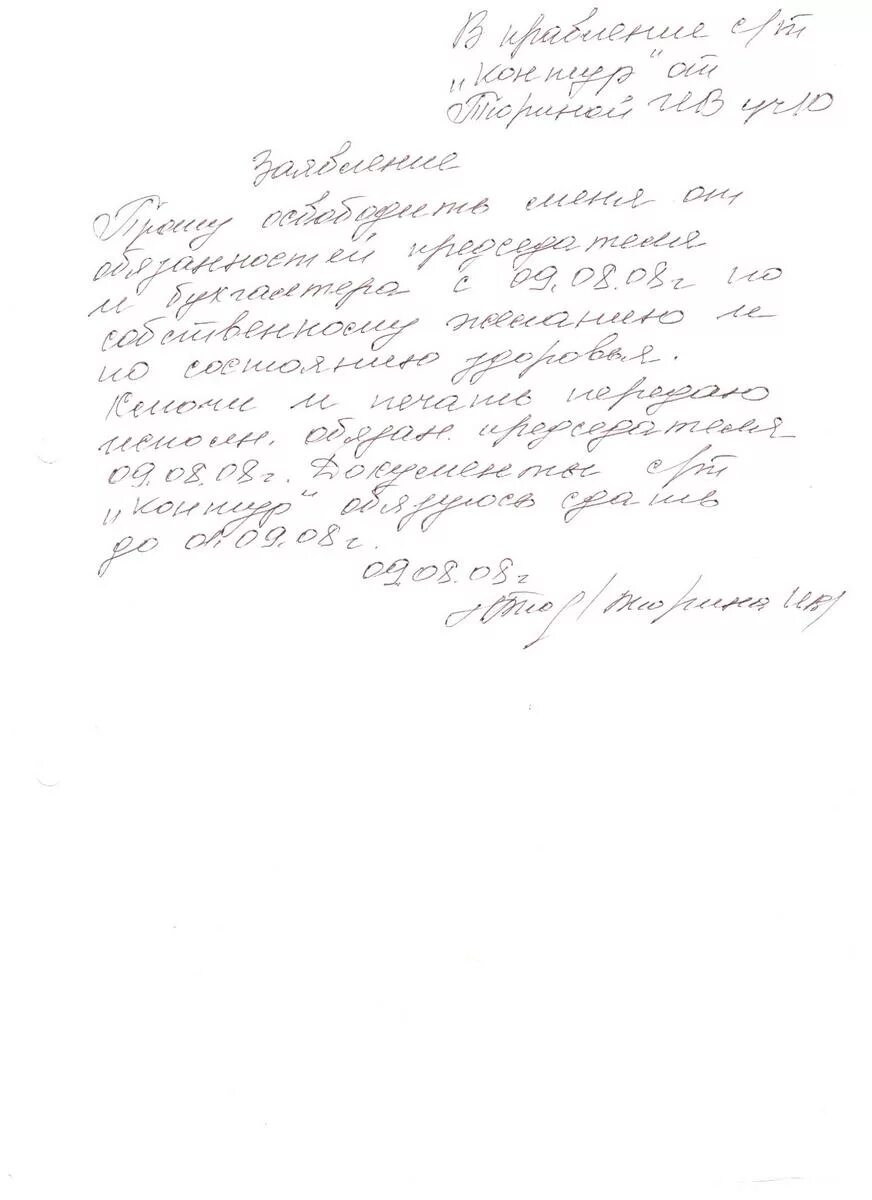 В правление с/т
„Контур" от
Тюриной ИВ уч10
Заявление
Прошу освободить меня от
обязанностей председателя
и бухгалтера с 09.08.08г по
собственному желанию и
по состоянию здоровья.
Ключи и печать передаю
исполн. обязан. председателя
09.08.08г. Документы с/т
„Контур" обязуюсь сдать
до 01.09.08г.
09.08.08г
/Тюрина ИВ/